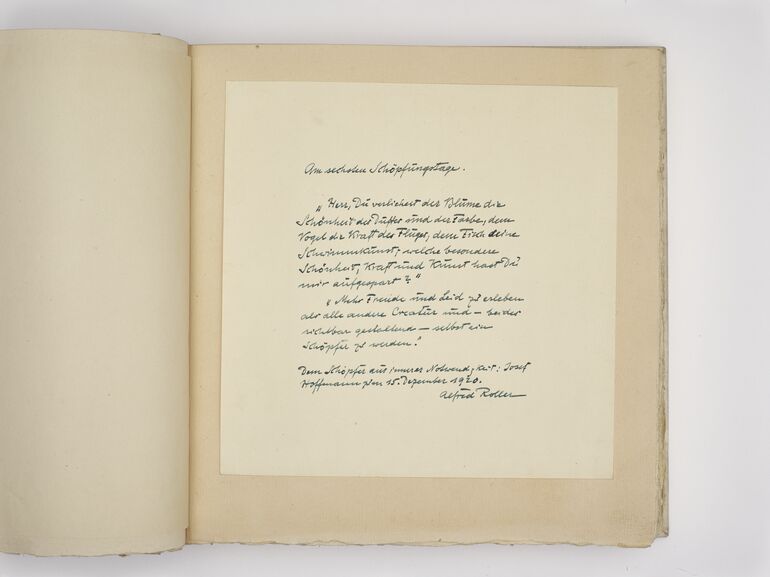 Am sechsten Schöpfungstage.
„Herr, Du verliehest der Blume die
Schönheit des Duftes und der Farbe, dem
Vogel die Kraft des Fluges, dem Fisch deine
Schwimmkunst, welche besondere
Schönheit, Kraft und Kunst hast Du
mir aufgespart?"
„Mehr Freude und Leid zu erleben
als alle andere Creatur und – beides
sichtbar gestaltend – selbst ein
Schöpfer zu werden."
Dem Schöpfer aus innerer Notwendigkeit: Josef
Hoffmann zum 15. Dezember 1920.
Alfred Roller